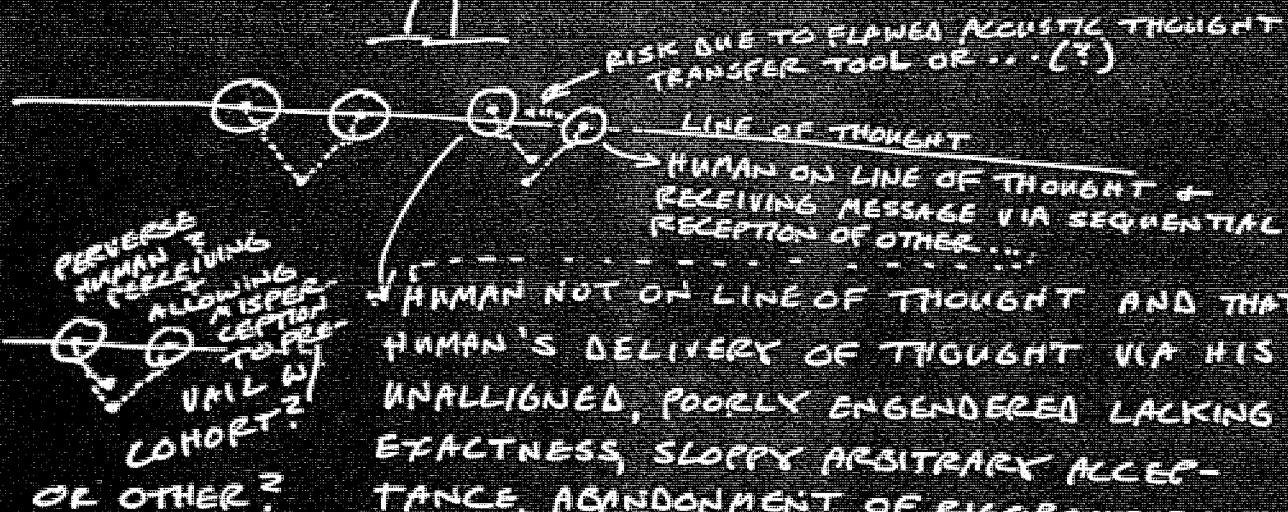 RISK DUE TO FLAWED ACCUSTIC THOUGHT
TRANSFER TOOL OR . . . (?)
LINE OF THOUGHT
HUMAN ON LINE OF THOUGHT &
RECEIVING MESSAGE VIA SEQUENTIAL
RECEPTION OF OTHER ...
PERVERSE
HUMAN ?
PERCEIVING
+
ALLOWING
MISPER-
CEPTION
TO PRE-
VAIL W/
COHORT?
OR OTHER?
HUMAN NOT ON LINE OF THOUGHT AND THAT
HUMAN'S DELIVERY OF THOUGHT VIA HIS
UNALLIGNED, POORLY ENGENDERED LACKING
EXACTNESS, SLOPPY ARBITRARY ACCEP-
TANCE, ABANDONMENT OF